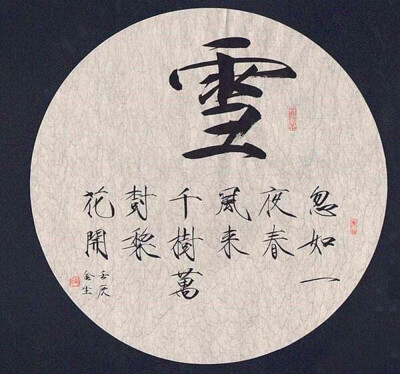 雪
忽如一
夜春
風来
千樹萬
樹梨
花開
壬辰
金生